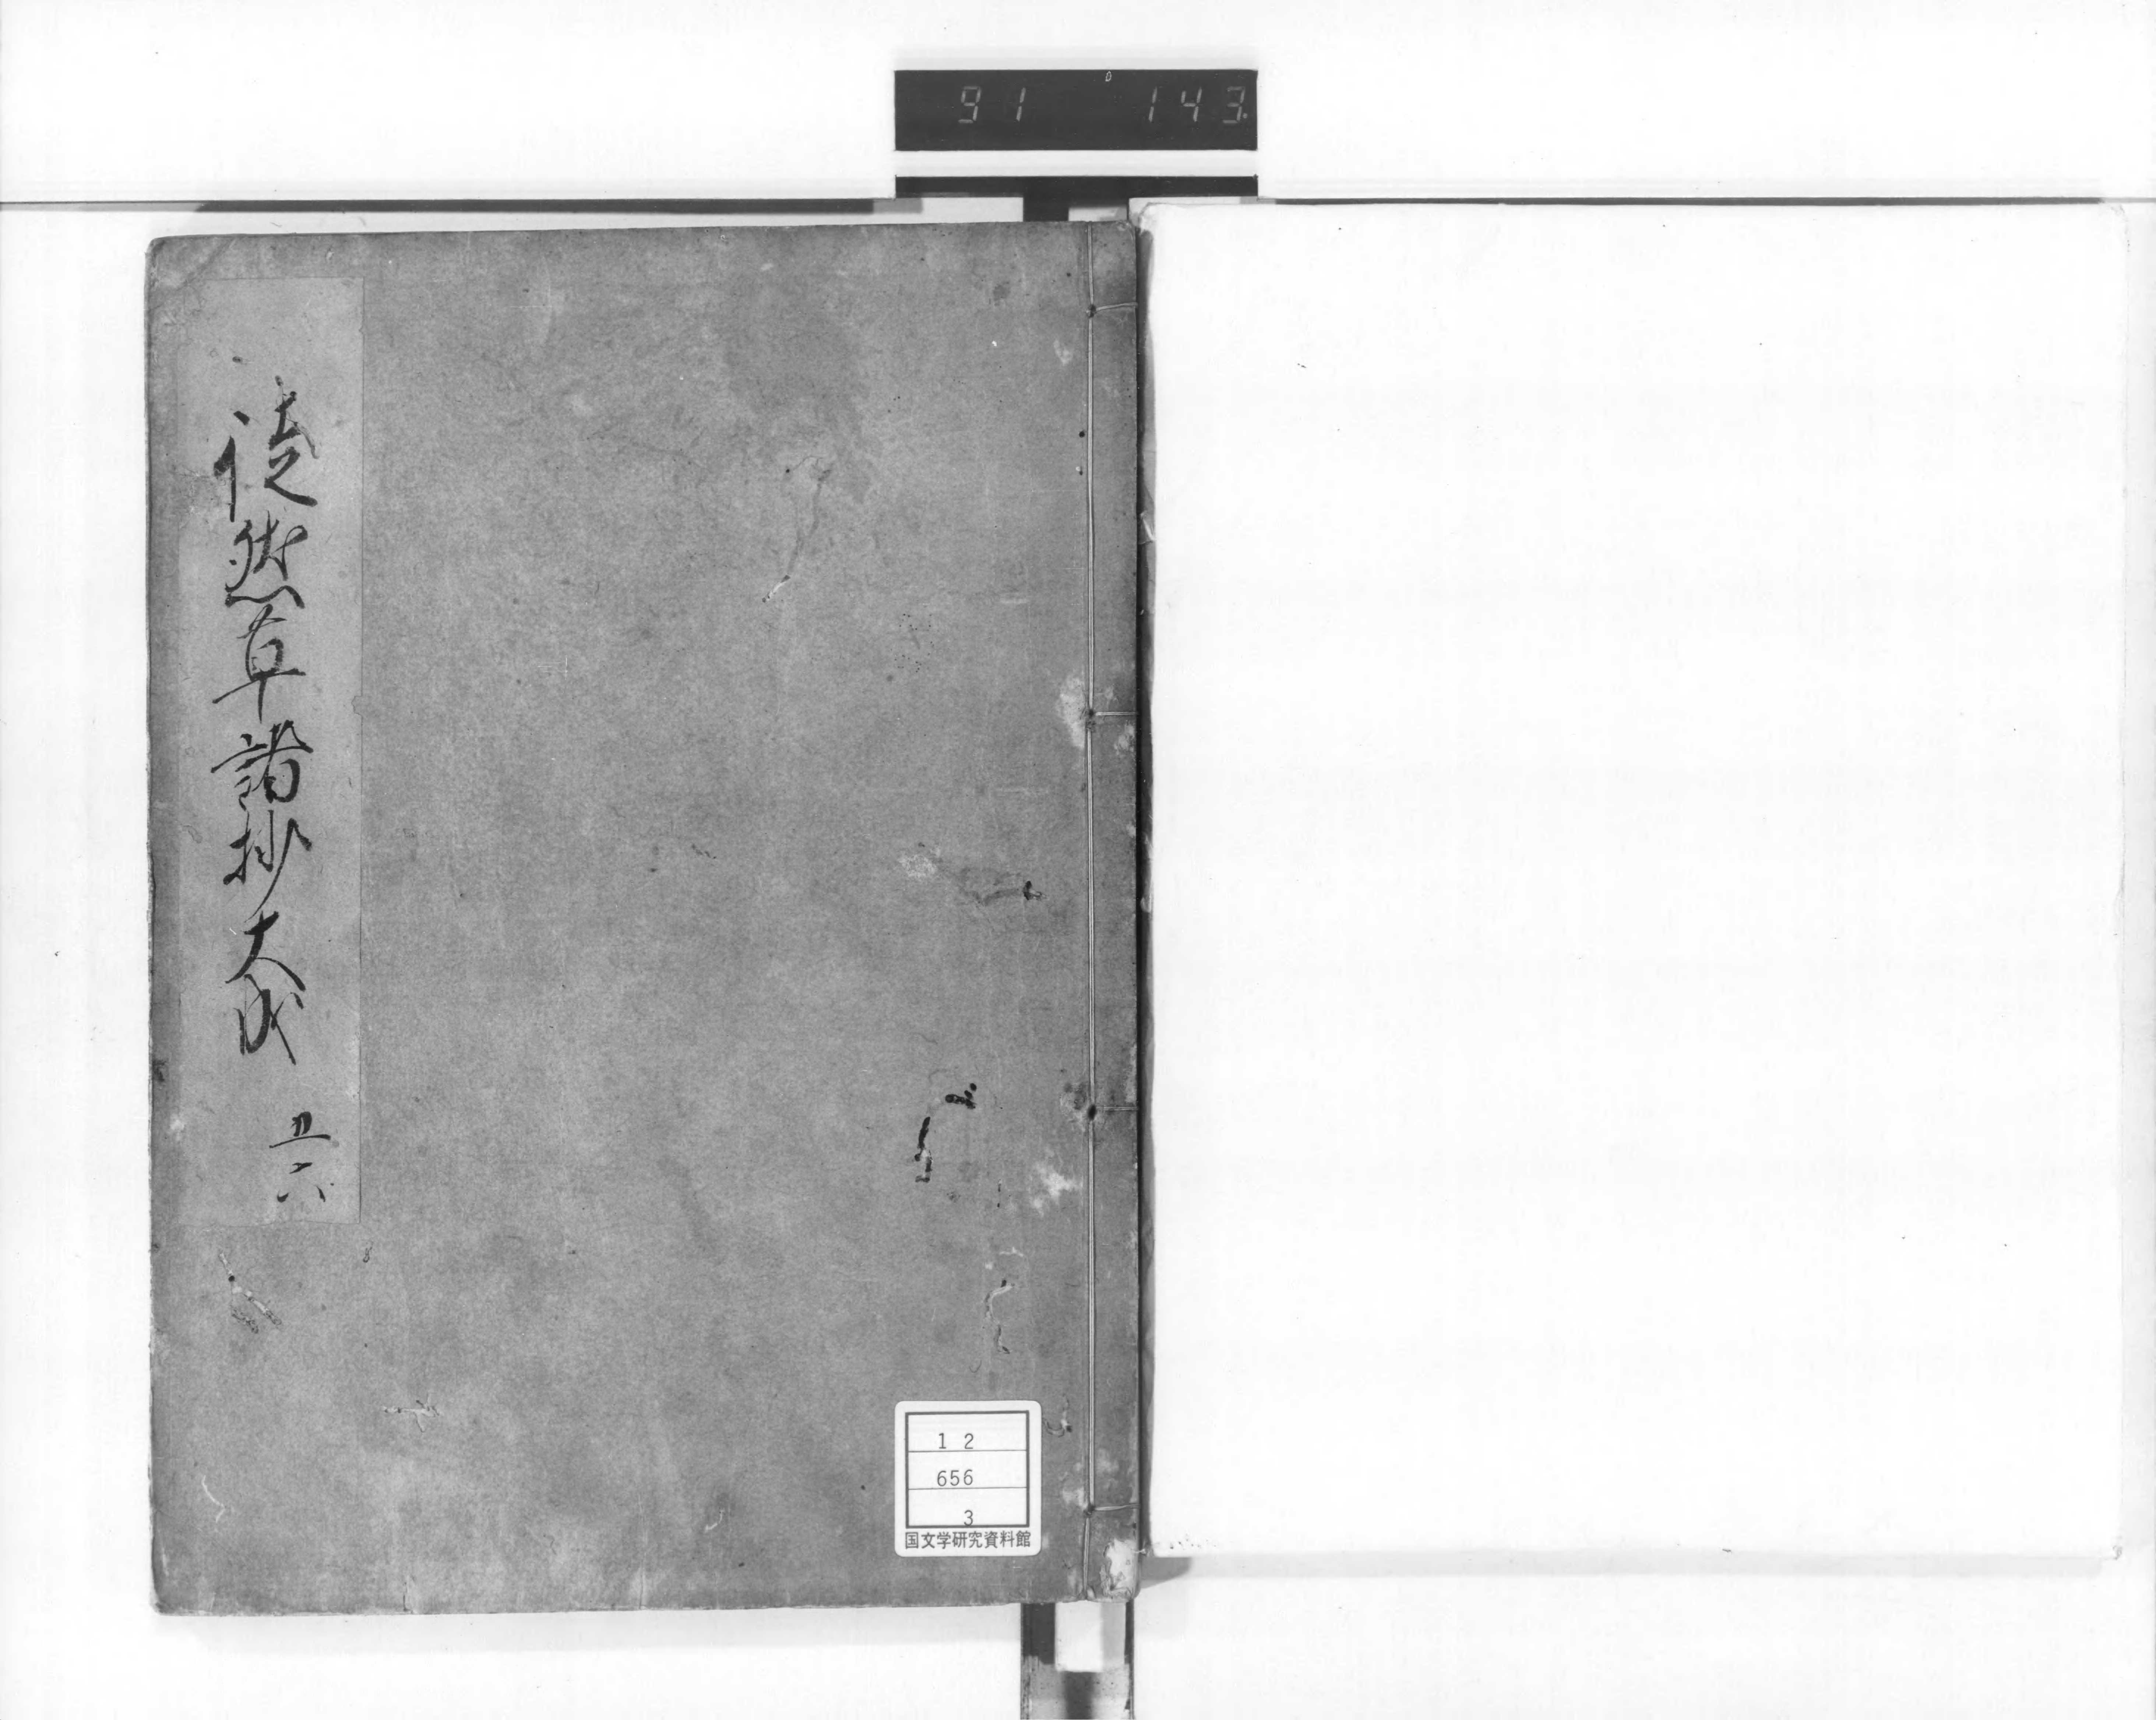 91 143
徒然草諸抄大成
五
六
12
656
3
国文学研究資料館